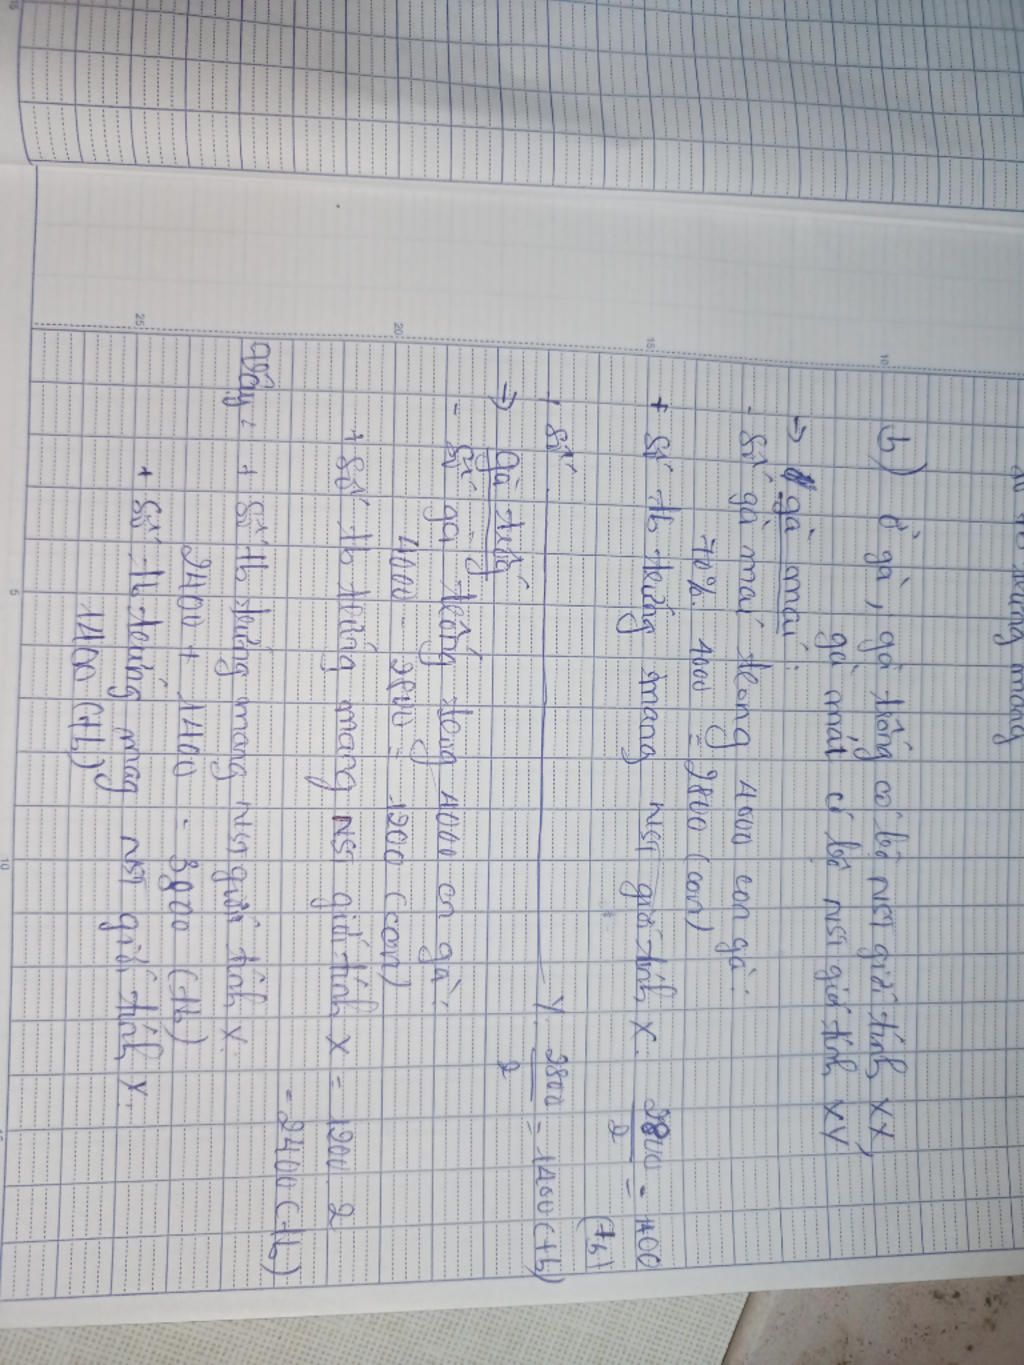 b) Ở gà, gà trống có bộ NST giới tính XX,
gà mái có bộ NST giới tính XY
→ gà mái:
- Số gà mái trong 4000 con gà:
70%. 4000 = 2800 (con)
+ Số tb trứng mang NST giới tính X: 2800/2 = 1400
(tb)
+ Số ———— Y: 2800/2 = 1400 (tb)
→ Gà trống
- Số gà trống trong 4000 con gà:
4000 - 2800 = 1200 (con)
+ Số tb trứng mang NST giới tính X = 1200. 2
= 2400 (tb)
Vậy: + Số tb trứng mang NST giới tính X:
2400 + 1400 = 3800 (tb)
+ Số tb trứng mang NST giới tính Y:
1400 (tb)
5
10
10
15
20
25